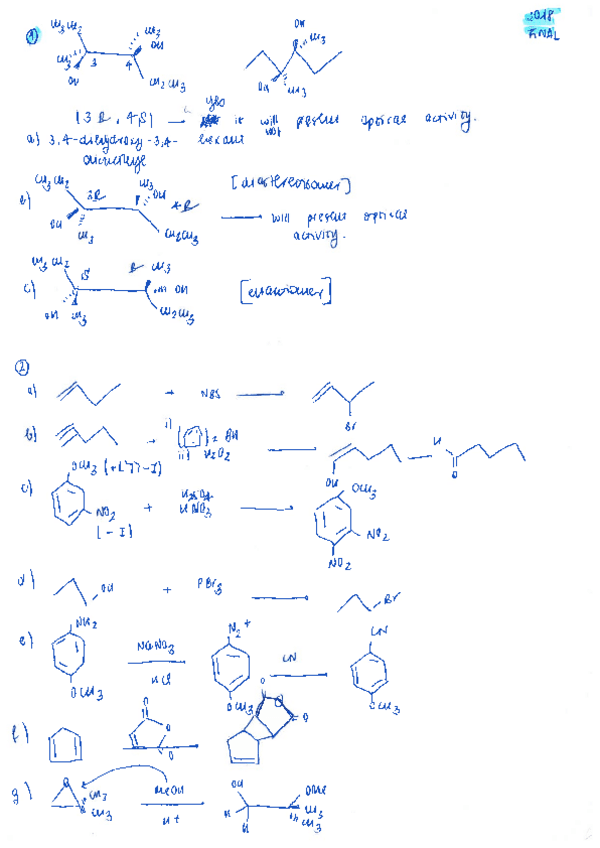 2018
FINAL
1)
CH3CH2
CH3
OH
3
4
CH3
OH
CH2CH3
OH
CH3
OH
CH3
(3R, 4S) → yes it will not present optical activity.
a) 3,4-dihydroxy-3,4-
hexane
dimethyl
b) CH3CH2
3R
CH3
OH
4R
[diastereoisomer]
OH
CH3
CH2CH3
→ will present optical
activity.
c) CH3CH2
S
R
CH3
OH
OH
CH3
CH2CH3
[enantiomer]
2)
a) + NBS → Br
b) i) ( )2 BH
ii) H2O2
OH
H
O
c) OCH3 (+M >> -I)
NO2
(-I)
+ H2SO4
HNO3
OCH3
NO2
NO2
d) OH + PBr3 → Br
e) NH2
OCH3
NaNO3
HCl
N2+
OCH3
CN
CN
OCH3
f) O
O
O
O
O
O
g) O
CH3
CH3
MeOH
H+
OH
H
H
OMe
CH3
CH3